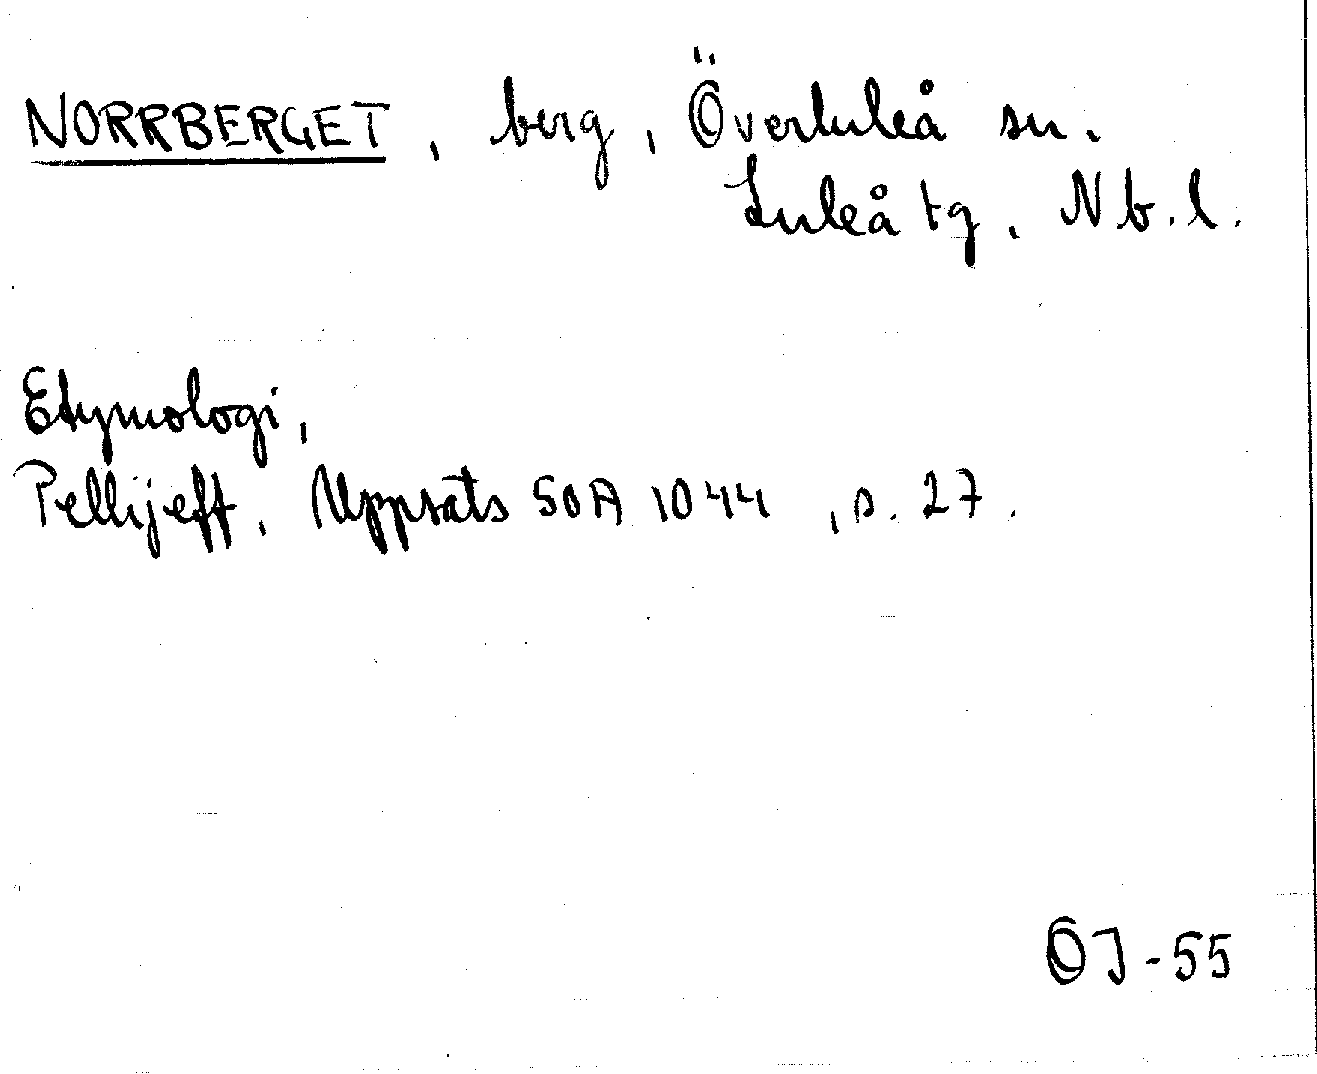 NORRBERGET, berg, Överluleå sn.
Luleå tg, Nb.l.
Etymologi,
Pellijeff, Uppsats SOA 1044, s. 27.
OJ-55